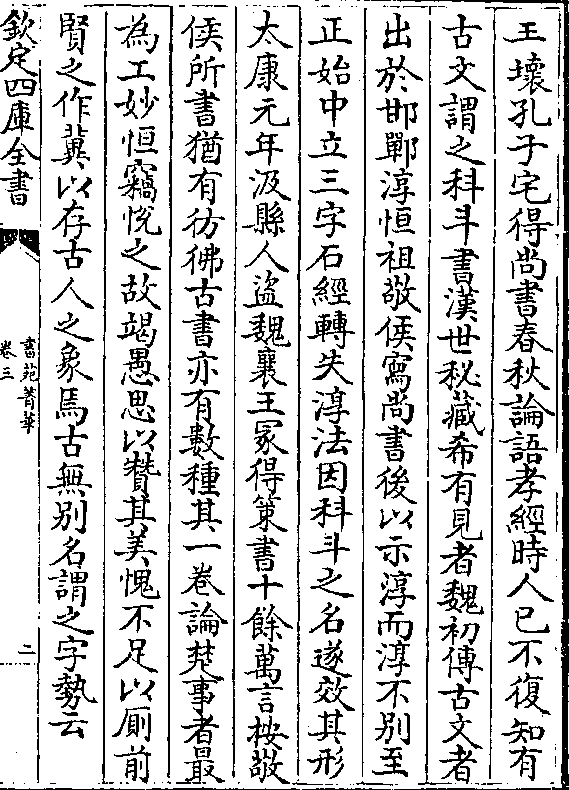 王壞孔子宅得尚書春秋論語孝經時人已不復知有
古文謂之科斗書漢世秘藏希有見者魏初傳古文者
出於邯鄲淳恒祖敬侯寫尚書後以示淳而淳不別至
正始中立三字石經轉失淳法因科斗之名遂效其形
太康元年汲縣人盜魏襄王冢得策書十餘萬言桉敬
侯所書猶有彷彿古書亦有數種其一卷論楚事者最
為工妙恒竊悅之故竭愚思以贊其美愧不足以厠前
賢之作冀以存古人之象焉古無別名謂之字勢云
欽定四庫全書
書苑菁華
卷三
二